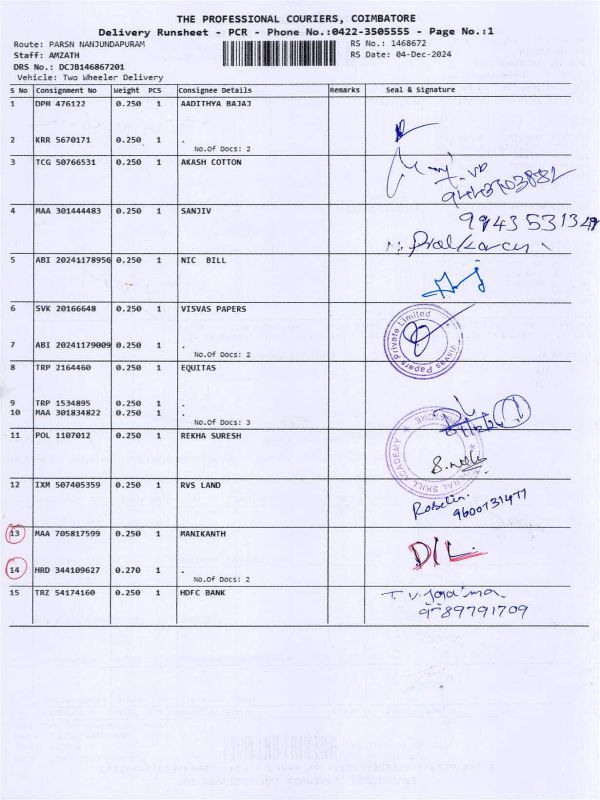 THE PROFESSIONAL COURIERS, COIMBATORE
Delivery Runsheet - PCR - Phone No.:0422-3505555 - Page No.:1
Route: PARSN NANJUNDAPURAM RS No.: 1468672
Staff: AMZATH RS Date: 04-Dec-2024
DRS No.: DCJB146867201
Vehicle: Two Wheeler Delivery
S No Consignment No Weight PCS Consignee Details Remarks Seal & Signature
1 DPM 476122 0.250 1 AADITHYA BAJAJ
2 KRR 5670171 0.250 1 .
No.Of Docs: 2
3 TCG 50766531 0.250 1 AKASH COTTON
4 MAA 301444483 0.250 1 SANJIV
9943531349
5 ABI 20241178956 0.250 1 NIC BILL
6 SVK 20166648 0.250 1 VISVAS PAPERS
Visvas Papers Private Limited
7 ABI 20241179009 0.250 1 .
No.Of Docs: 2
8 TRP 2164460 0.250 1 EQUITAS
9 TRP 1534895 0.250 1 .
10 MAA 301834822 0.250 1 .
No.Of Docs: 3
11 POL 1107012 0.250 1 REKHA SURESH
SKILL ACADEMY
12 IXM 507405359 0.250 1 RVS LAND
9600731477
13 MAA 705817599 0.250 1 MANIKANTH
D/L
14 HRD 344109627 0.270 1 .
No.Of Docs: 2
15 TRZ 54174160 0.250 1 HDFC BANK
9789791709